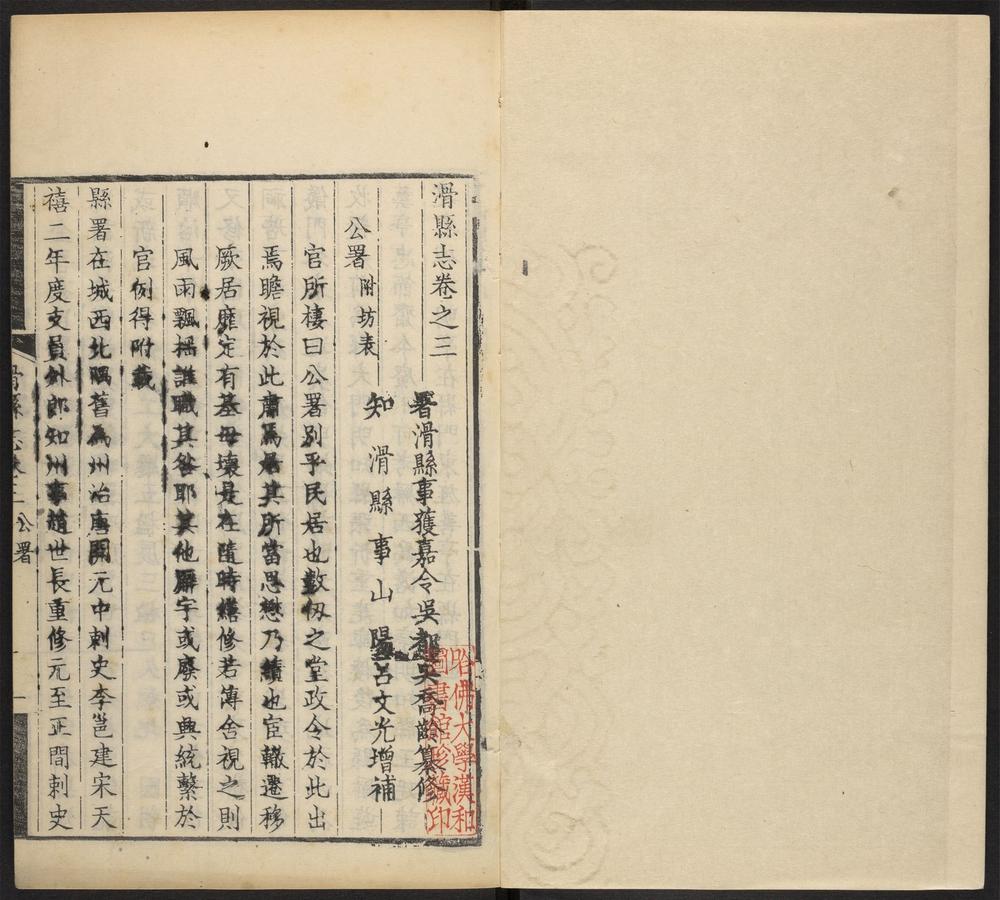 滑縣志卷之三
署滑縣事獲嘉令吳都吳喬齡纂修
知滑縣事山陽呂文光增補
公署 附坊表
官所棲曰公署別乎民居也數仞之堂政令於此出
焉瞻視於此肅焉居其所當思懋乃績也宦轍遷移
厥居靡定有基毋壞是在隨時繕修若傳舍視之則
風雨飄搖誰職其咎耶其他廨宇或廢或興統繫於
官例得附載
縣署在城西北隅舊為州治唐開元中刺史李邕建宋天
禧二年度支員外郎知州事趙世長重修元至正間刺史
滑縣志 卷三 公署 一
哈佛大學漢和
圖書館珍藏印